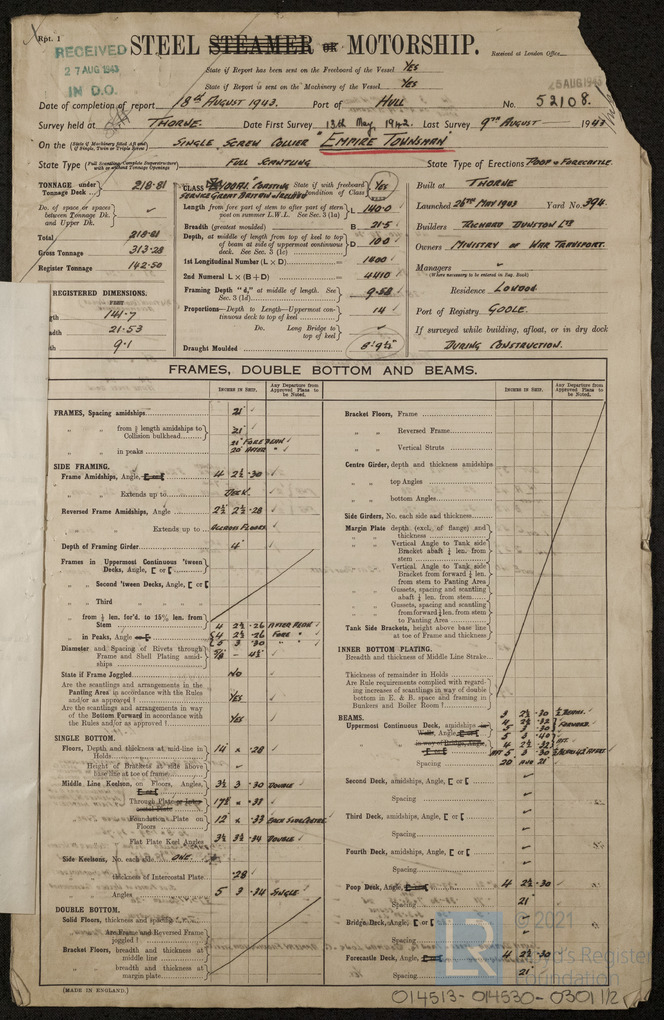 Rpt. 1
RECEIVED
27 AUG 1943
IN D.O.
STEEL STEAMER OR MOTORSHIP.
Received at London Office
25 AUG 1943
State if Report has been sent on the Freeboard of the Vessel YES
State if Report is sent on the Machinery of the Vessel YES
Date of completion of report 18th AUGUST 1943. Port of HULL No. 52108.
Survey held at THORNE. Date First Survey 13th May, 1942. Last Survey 9TH AUGUST 1943
On the SINGLE SCREW COLLIER "EMPIRE TOWNSMAN"
State Type FULL SCANTLING State Type of Erections POOP & FORECASTLE.
TONNAGE under Tonnage Deck 218·81
Do. of space or spaces between Tonnage Dk. and Upper Dk.
Total 218·81
Gross Tonnage 313·28
Register Tonnage 142·50
REGISTERED DIMENSIONS.
FEET
gth 141·7
adth 21·53
th 9·1
CLASS 100A1. "COASTING State if with freeboard condition of Class YES
SERVICE GREAT BRITAIN & IRELAND
Length from fore part of stem to after part of stern post on summer L.W.L. See Sec. 3 (1a) L 140·0
Breadth (greatest moulded) B 21·5
Depth, at middle of length from top of keel to top of beam at side of uppermost continuous deck. See Sec. 3 (1c) D 10·0
1st Longitudinal Number (L × D) 1400
2nd Numeral L × (B + D) 4410
Framing Depth "d," at middle of length. See Sec. 3 (1d) 9·58
Proportions—Depth to Length—Uppermost continuous deck to top of keel 14
Do. Long Bridge to top of keel
Draught Moulded 8'-9½"
Built at THORNE
Launched 26TH MAY 1943 Yard No. 394.
Builders RICHARD DUNSTON LTD
Owners MINISTRY OF WAR TRANSPORT.
Managers
(Where necessary to be entered in Reg. Book)
Residence LONDON
Port of Registry GOOLE.
If surveyed while building, afloat, or in dry dock
DURING CONSTRUCTION.
FRAMES, DOUBLE BOTTOM AND BEAMS.
INCHES IN SHIP.
Any Departure from Approved Plans to be Noted.
FRAMES, Spacing amidships 21"
" " from ⅗ length amidships to Collision bulkhead 21"
" " in peaks 21" FORE PEAK
20" AFTER "
SIDE FRAMING.
Frame Amidships, Angle 4 2½ ·30
" " Extends up to DECK.
Reversed Frame Amidships, Angle 2½ 2½ ·28
" " Extends up to ACROSS FLOORS.
Depth of Framing Girder 4"
Frames in Uppermost Continuous 'tween Decks, Angle, [ or [
" Second 'tween Decks, Angle, [ or [
" Third " "
" from ⅗ len. for'd. to 15% len. from Stem 4 2½ ·26 AFTER PEAK
" in Peaks, Angle 4 2½ ·26 FORE "
5 3 ·30 " "
Diameter and Spacing of Rivets through Frame and Shell Plating amidships 5/8 - 4½"
State if Frame Joggled NO
Are the scantlings and arrangements in the Panting Area in accordance with the Rules and/or as approved? YES
Are the scantlings and arrangements in way of the Bottom Forward in accordance with the Rules and/or as approved? YES
SINGLE BOTTOM.
Floors, Depth and thickness at mid-line in Holds 14 × ·28
" Height of Brackets at side above base line at toe of frame
Middle Line Keelson, on Floors, Angles, 3½ 3 ·30 DOUBLE
" " Through Plate or Intercostal Plate 17½ × ·38
" " Foundation Plate on Floors 12 × ·33
" " Flat Plate Keel Angles 3½ 3½ ·34 DOUBLE
Side Keelsons, No. each side ONE
" " thickness of Intercostal Plate ·28
" " Angles 5 3 ·34 SINGLE
DOUBLE BOTTOM.
Solid Floors, thickness and spacing
" " Are Frame and Reversed Frame joggled?
Bracket Floors, breadth and thickness at middle line
" " breadth and thickness at margin plate
Bracket Floors, Frame
" " Reversed Frame
" " Vertical Struts
Centre Girder, depth and thickness amidships
" " top Angles
" " bottom Angles
Side Girders, No. each side and thickness
Margin Plate depth (excl. of flange) and thickness
" " Vertical Angle to Tank side Bracket abaft ¼ len. from stem
" " Vertical Angle to Tank side Bracket from forward ¼ len. from stem to Panting Area
" " Gussets, spacing and scantling abaft ¼ len. from stem
" " Gussets, spacing and scantling from forward ¼ len. from stem to Panting Area
Tank Side Brackets, height above base line at toe of Frame and thickness
INNER BOTTOM PLATING.
Breadth and thickness of Middle Line Strake
Thickness of remainder in Holds
Are Rule requirements complied with regarding increases of scantlings in way of double bottom in E. & B. space and framing in Bunkers and Boiler Room?
BEAMS.
Uppermost Continuous Deck, amidships
Wells, Angle,
in way of Bridge, Angle,
Spacing 20 AND 21
Second Deck, amidships, Angle, [ or [
Spacing
Third Deck, amidships, Angle, [ or [
Spacing
Fourth Deck, amidships, Angle, [ or [
Spacing
Poop Deck, Angle, 4 2½ ·30
Spacing 21
Bridge Deck, Angle, [ or [
Spacing
Forecastle Deck, Angle, 4 2½ ·30
Spacing 21"
(MADE IN ENGLAND.)
© 2021
Lloyd's Register
Foundation
014513-014530-0301 1/2